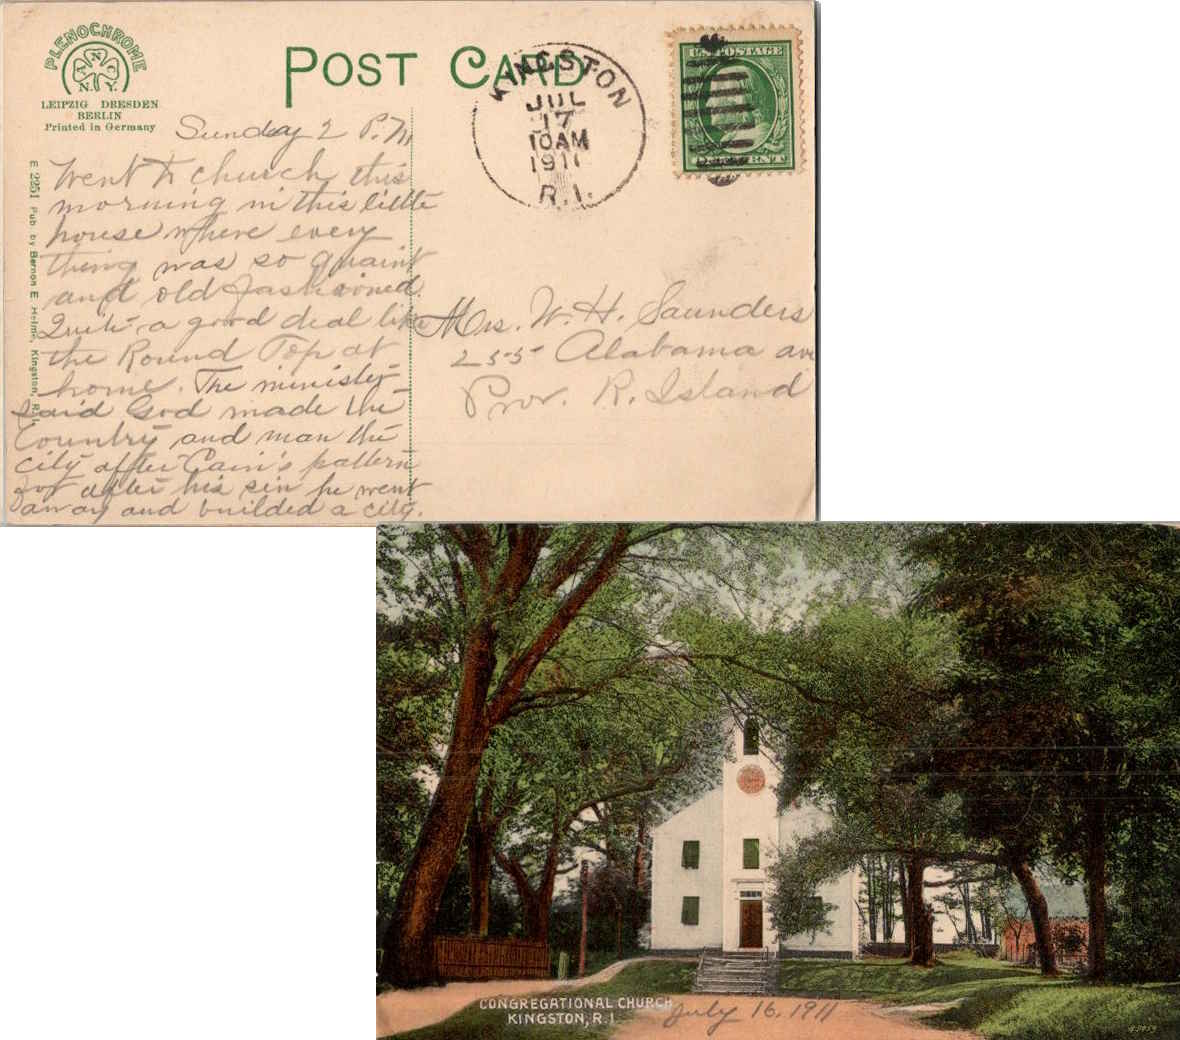 PLENOCHROME
T N C
N.Y.
LEIPZIG DRESDEN
BERLIN
Printed in Germany
POST CARD
KINGSTON
JUL
17
10AM
1911
R.I.
U.S. POSTAGE
E 2251 Pub. by Bernon E. Helme, Kingston, R.I.
Sunday 2 P.M
Went to church this
morning in this little
house where every
thing was so quaint
and old fashioned.
Quite a good deal like
the Round Top at
home. The minister
said God made the
Country and man the
city after Cain's pattern
for after his sin he went
away and builded a city.
Mrs. W. H. Saunders
255 Alabama ave
Prov. R. Island
CONGREGATIONAL CHURCH
KINGSTON, R.I.
July 16, 1911